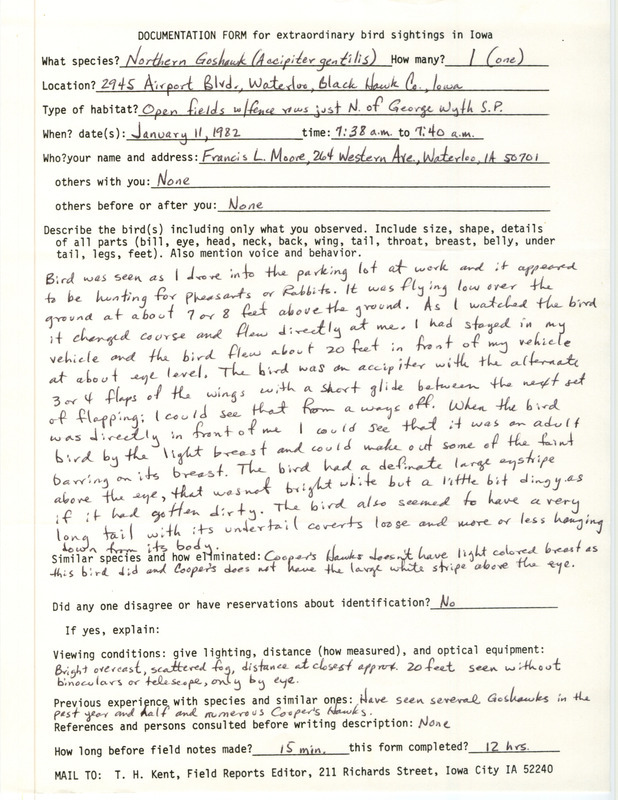 DOCUMENTATION FORM for extraordinary bird sightings in Iowa
What species? Northern Goshawk (Accipiter gentilis) How many? 1 (one)
Location? 2945 Airport Blvd., Waterloo, Black Hawk Co., Iowa
Type of habitat? Open fields w/fence rows just N. of George Wyth S.P.
When? date(s): January 11, 1982 time: 7:38 a.m. to 7:40 a.m.
Who?your name and address: Francis L. Moore, 264 Western Ave., Waterloo, IA 50701
others with you: None
others before or after you: None
Describe the bird(s) including only what you observed. Include size, shape, details
of all parts (bill, eye, head, neck, back, wing, tail, throat, breast, belly, under
tail, legs, feet). Also mention voice and behavior.
Bird was seen as I drove into the parking lot at work and it appeared
to be hunting for pheasants or Rabbits. It was flying low over the
ground at about 7 or 8 feet above the ground. As I watched the bird
it changed course and flew directly at me. I had stayed in my
vehicle and the bird flew about 20 feet in front of my vehicle
at about eye level. The bird was an accipiter with the alternate
3 or 4 flaps of the wings with a short glide between the next set
of flapping; I could see that from a ways off. When the bird
was directly in front of me I could see that it was an adult
bird by the light breast and could make out some of the faint
barring on its breast. The bird had a definate large eyestripe
above the eye, that was not bright white but a little bit dingy as
if it had gotten dirty. The bird also seemed to have a very
long tail with its undertail coverts loose and more or less hanging
down from its body.
Similar species and how eliminated: Cooper's Hawks doesn't have light colored breast as
this bird did and Cooper's does not have the large white stripe above the eye.
Did any one disagree or have reservations about identification? No
If yes, explain:
Viewing conditions: give lighting, distance (how measured), and optical equipment:
Bright overcast, scattered fog, distance at closest approx. 20 feet seen without
binoculars or telescope, only by eye.
Previous experience with species and similar ones: Have seen several Goshawks in the
past year and half and numerous Cooper's Hawks.
References and persons consulted before writing description: None
How long before field notes made? 15 min. this form completed? 12 hrs.
MAIL TO: T. H. Kent, Field Reports Editor, 211 Richards Street, Iowa City IA 52240